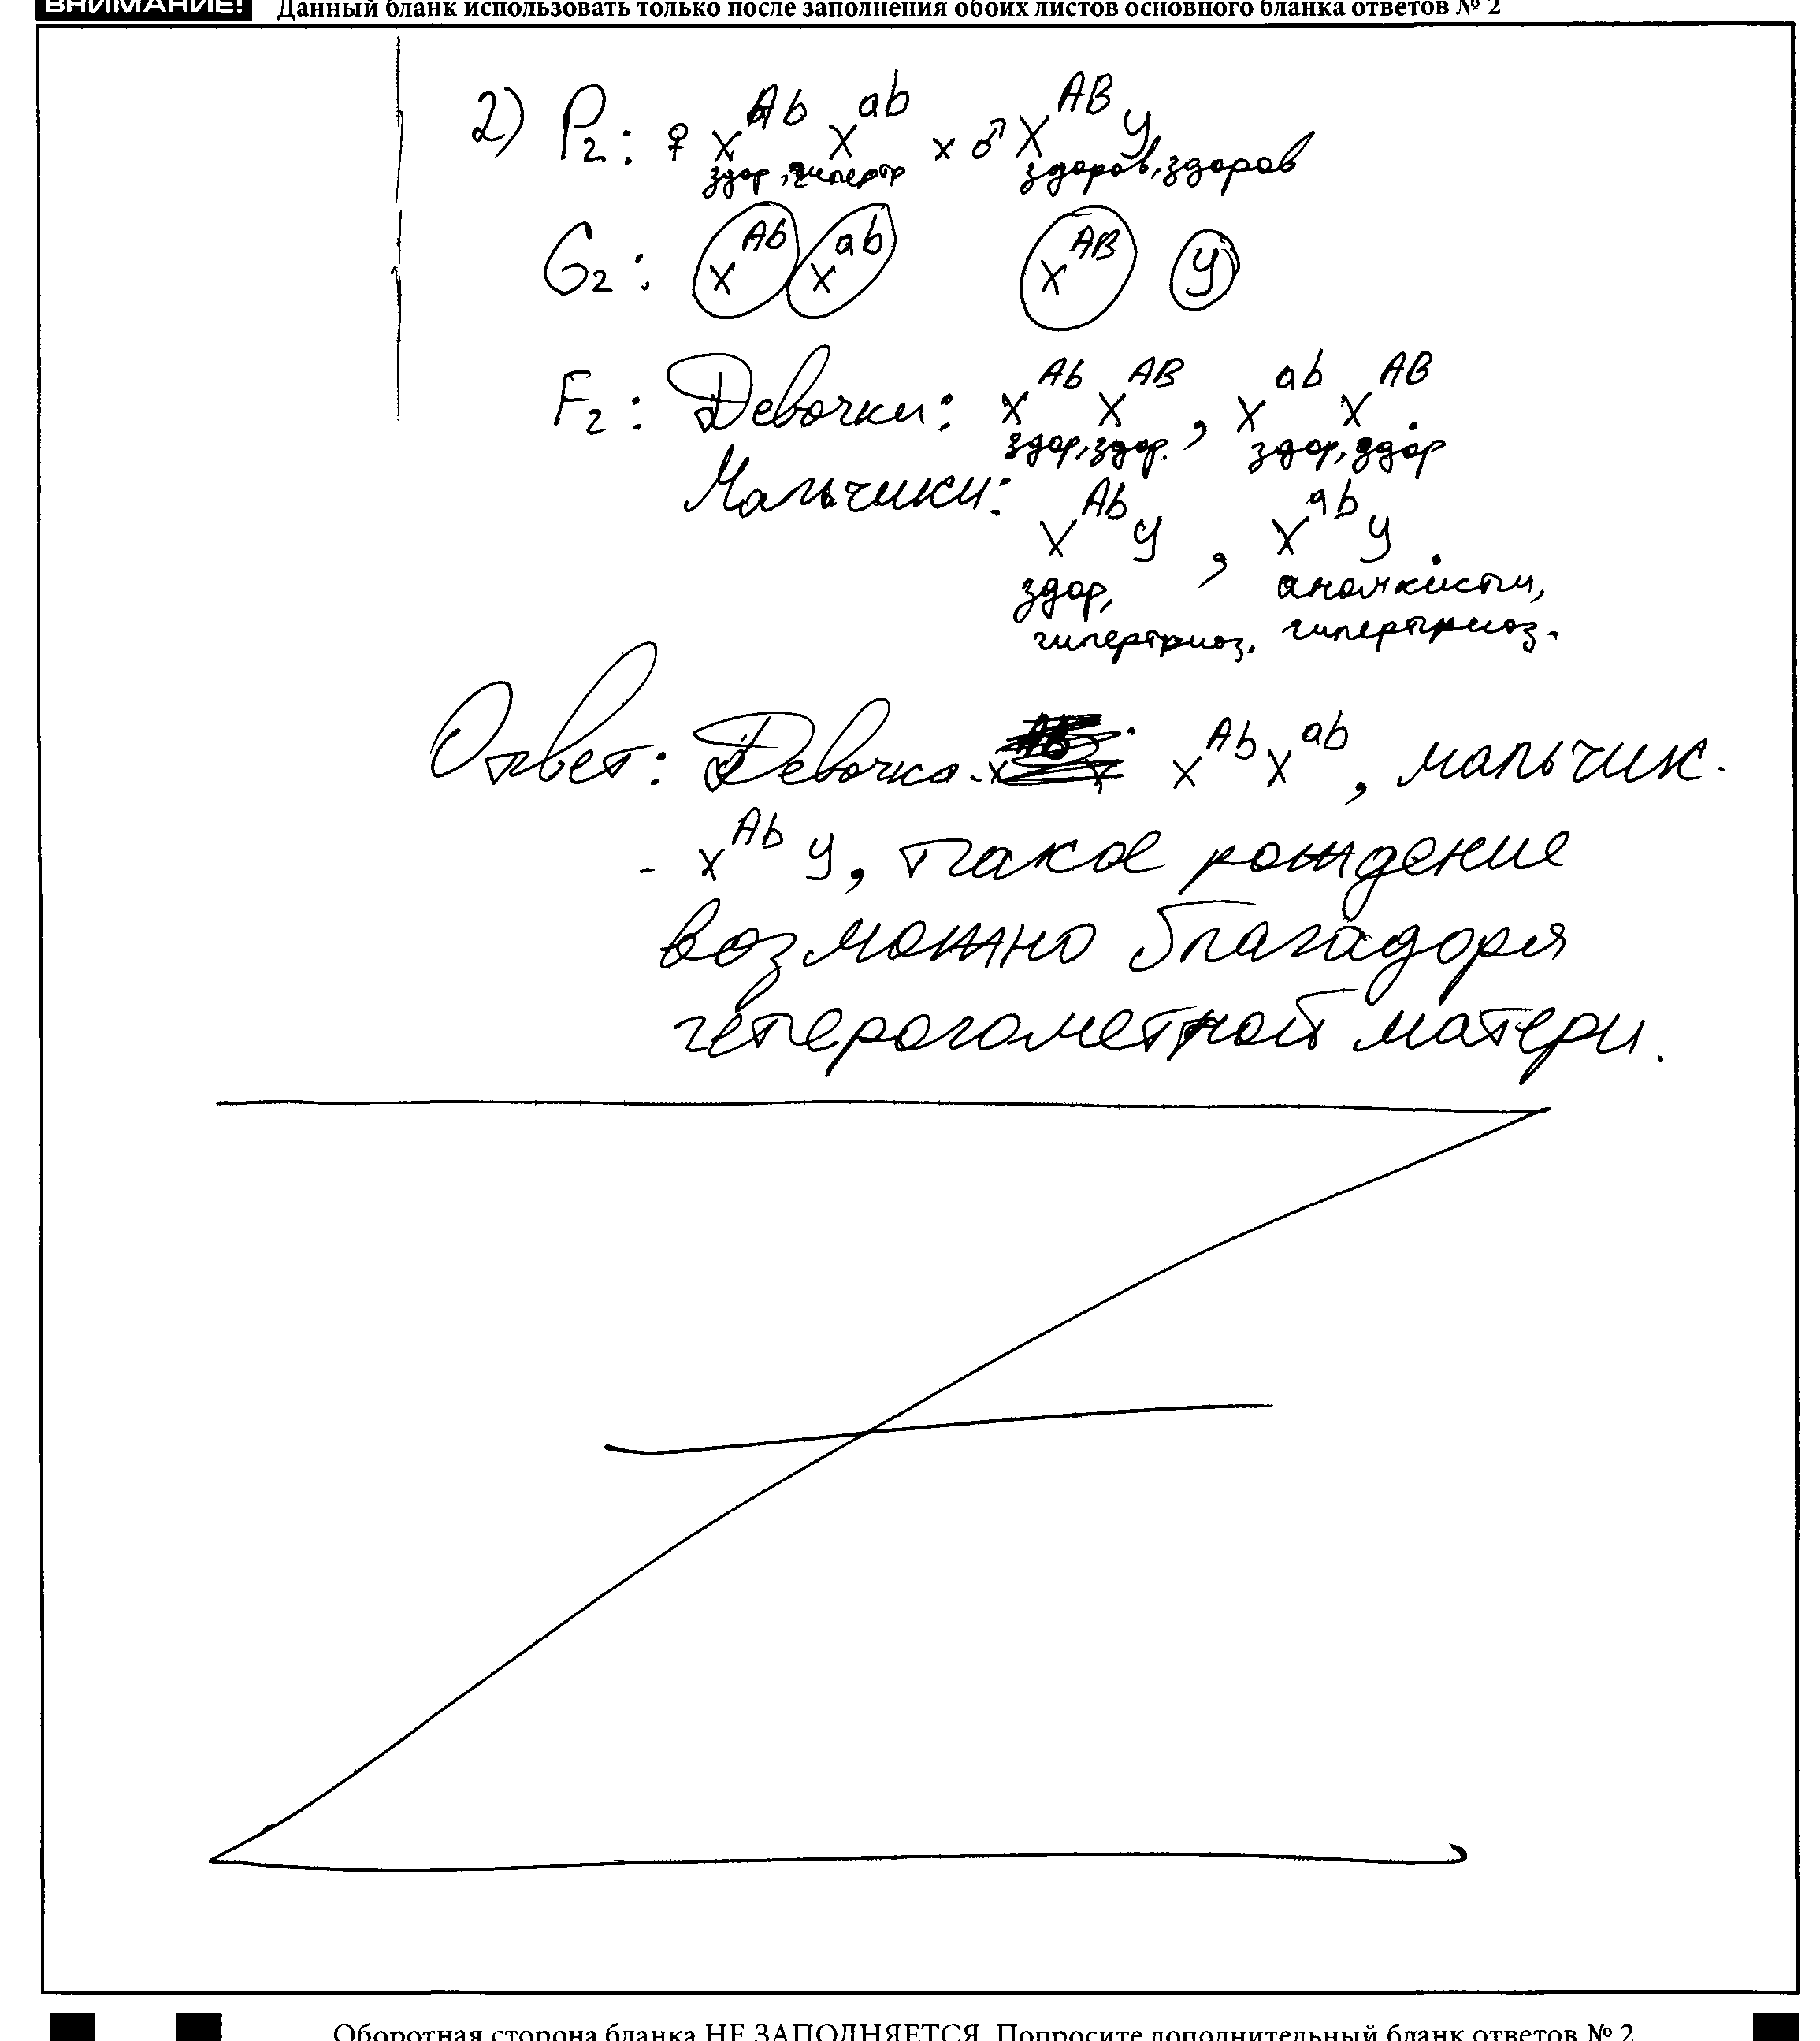 ВНИМАНИЕ! Данный бланк использовать только после заполнения обоих листов основного бланка ответов № 2
2) P₂: ♀ X^Ab X^ab x ♂ X^AB У
здор, гиперт здоров, здоров
G₂: X^Ab X^ab X^AB У
F₂: Девочки: X^Ab X^AB, X^ab X^AB.
здор, здор. здор, здор
Мальчики: X^Ab У, X^ab У.
здор, аномкисти,
гипертриоз. гипертриоз.
Ответ: Девочка - X^Ab X^ab, мальчик.
- X^Ab У, такое рождение
возможно благадоря
гетерогометной матери.
Оборотная сторона бланка НЕ ЗАПОЛНЯЕТСЯ. Попросите дополнительный бланк ответов № 2